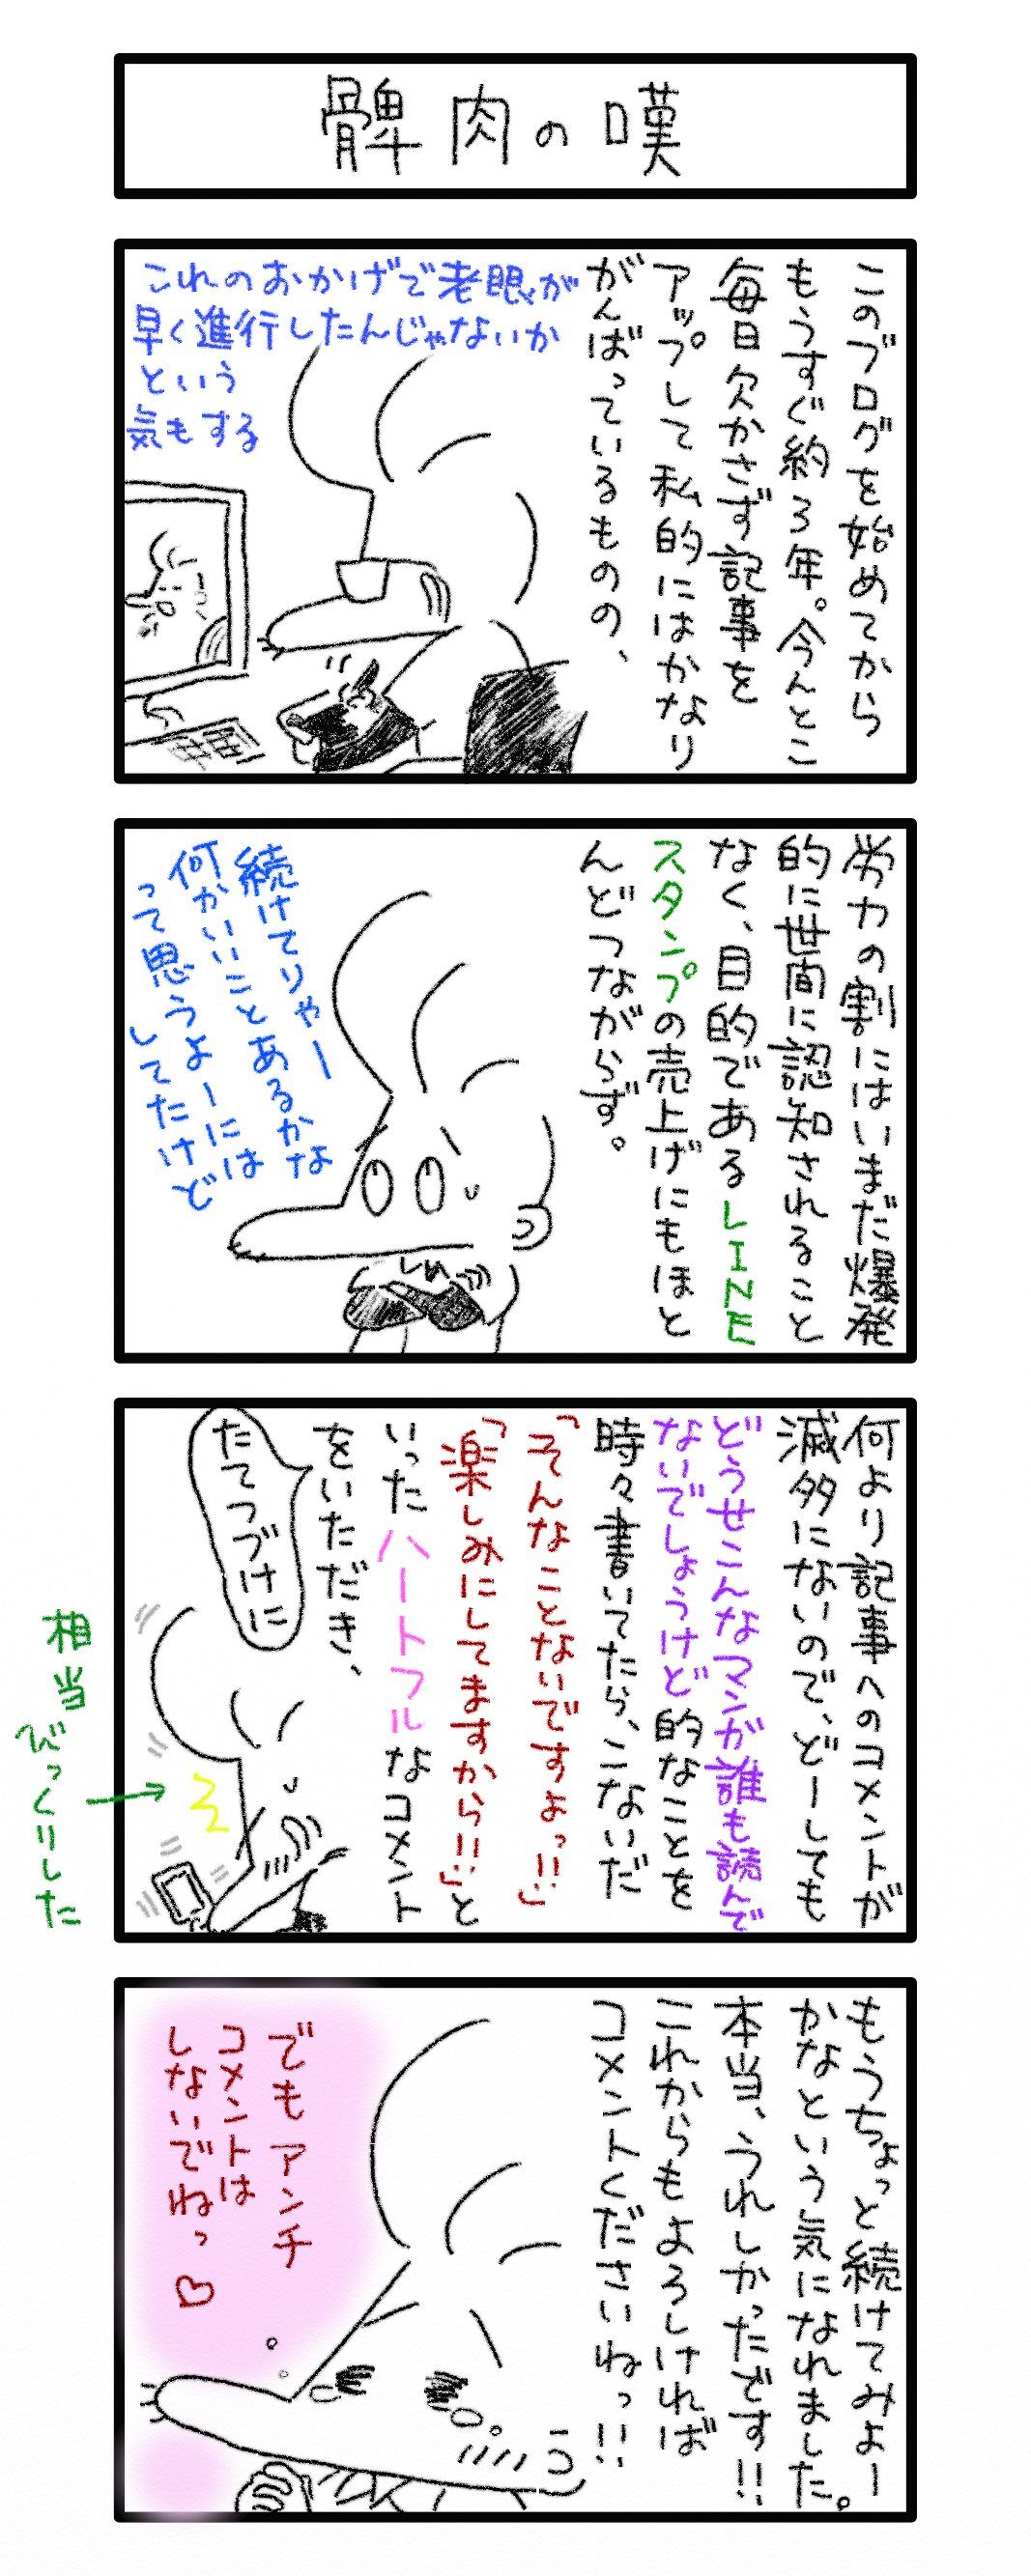 髀肉の嘆
このブログを始めてから
もうすぐ約3年。今んとこ
毎日欠かさず記事を
アップして私的にはかなり
がんばっているものの、
これのおかげで老眼が
早く進行したんじゃないか
という
気もする
労力の割にはいまだ爆発
的に世間に認知されること
なく、目的であるLINE
スタンプの売上げにもほと
んどつながらず。
続けてりゃー
何かいいことあるかな
って思うよーには
してたけど
何より記事へのコメントが
滅多にないので、どーしても
どうせこんなマンガ誰も読んで
ないでしょうけど的なことを
時々書いてたら、こないだ
「そんなことないですよっ!!」
「楽しみにしてますから!!」と
いったハートフルなコメント
をいただき、
たてつづけに
相当
びっくりした
もうちょっと続けてみよー
かなという気になれました。
本当、うれしかったです!!
これからもよろしければ
コメントくださいねっ!!
でもアンチ
コメントは
しないでねっ♡